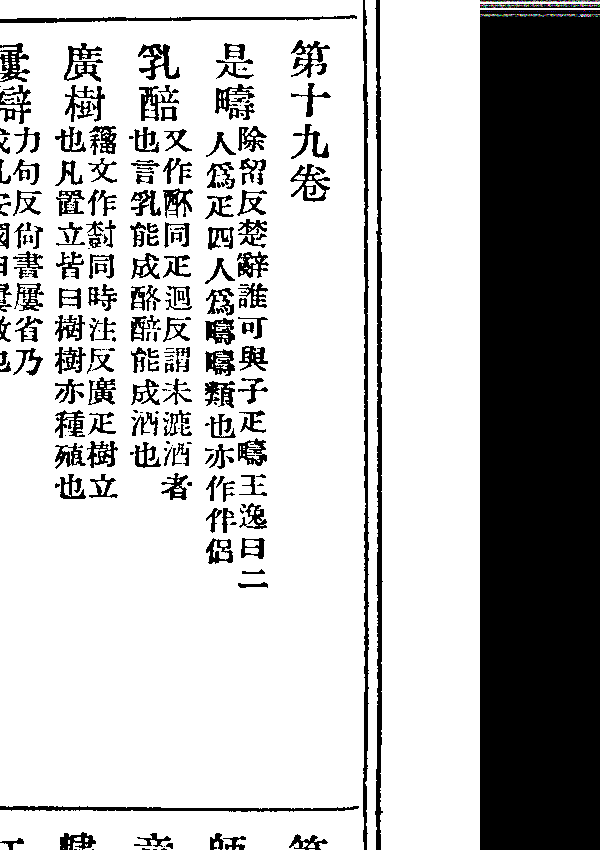 第十九卷
是疇
除留反楚辭誰可與子疋疇王逸曰二
人爲疋四人爲疇疇類也亦作伴侶
乳醅
又作同疋迴反謂未漉酒者
也言乳能成酪醅能成酒也
廣樹
籒文作尌同時注反廣疋樹立
也凡置立皆曰樹樹亦種殖也
屢
力句反尙書屢省乃